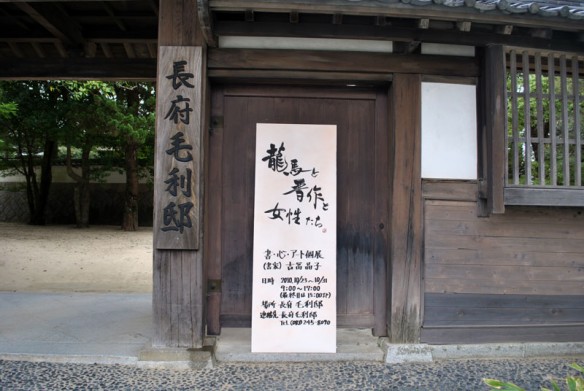 長府毛利邸
龍馬と
晋作と
女性たち。
書・心・アート個展
(書家) 古〓晶子
日時 2010.10/25〜10/31
9:00〜17:00
(最終日は15:00まで)
場所 長府毛利邸
連絡先 長府毛利邸
Tel. (083)245-8090